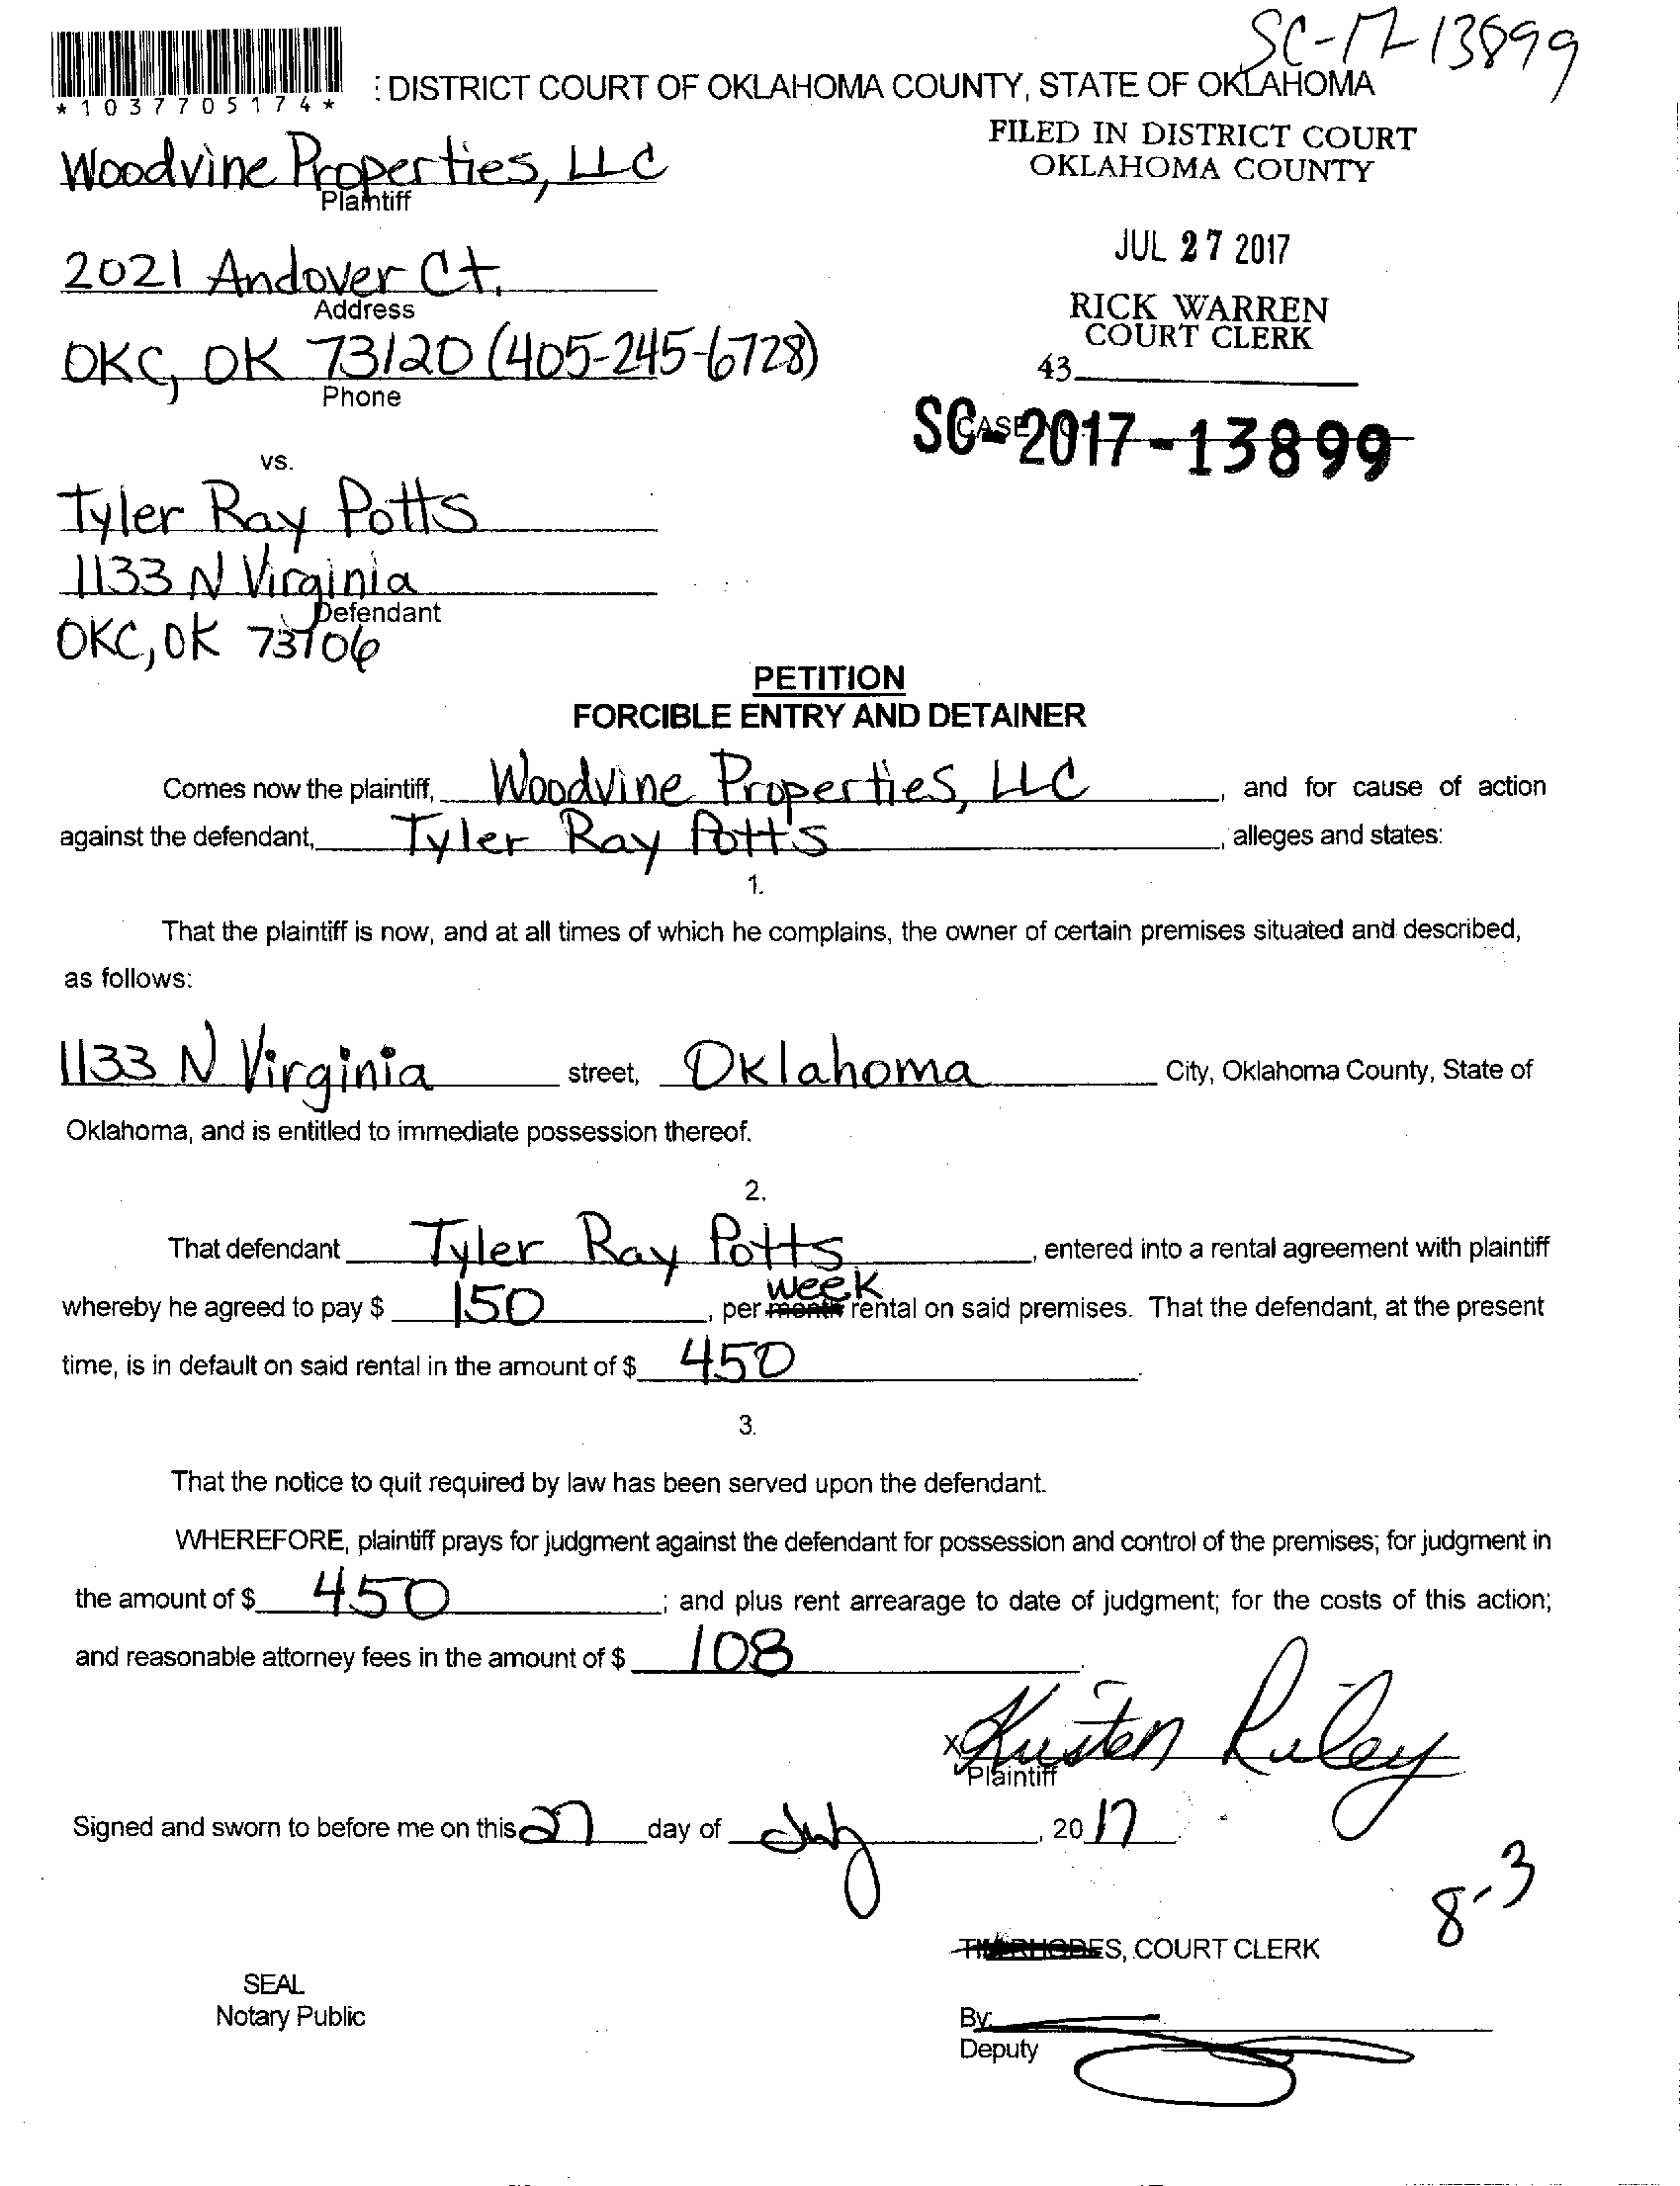 SC-17-13899
*1037705174*
: DISTRICT COURT OF OKLAHOMA COUNTY, STATE OF OKLAHOMA
FILED IN DISTRICT COURT
OKLAHOMA COUNTY
Woodvine Properties, LLC
Plaintiff
JUL 27 2017
2021 Andover Ct.
Address
RICK WARREN
COURT CLERK
OKC, OK 73120 (405-245-6728)
Phone
43
CASE NO.
SC-2017-13899
vs.
Tyler Ray Potts
1133 N Virginia
Defendant
OKC, OK 73106
PETITION
FORCIBLE ENTRY AND DETAINER
Comes now the plaintiff, Woodvine Properties, LLC, and for cause of action
against the defendant, Tyler Ray Potts, alleges and states:
1.
That the plaintiff is now, and at all times of which he complains, the owner of certain premises situated and described,
as follows:
1133 N Virginia street, Oklahoma City, Oklahoma County, State of
Oklahoma, and is entitled to immediate possession thereof.
2.
That defendant Tyler Ray Potts, entered into a rental agreement with plaintiff
week
whereby he agreed to pay $ 150, per month rental on said premises. That the defendant, at the present
time, is in default on said rental in the amount of $ 450.
3.
That the notice to quit required by law has been served upon the defendant.
WHEREFORE, plaintiff prays for judgment against the defendant for possession and control of the premises; for judgment in
the amount of $ 450; and plus rent arrearage to date of judgment; for the costs of this action;
and reasonable attorney fees in the amount of $ 108.
X Kristen Riley
Plaintiff
Signed and sworn to before me on this 27 day of July, 2017
8-3
TIM RHODES, COURT CLERK
SEAL
Notary Public
By:
Deputy